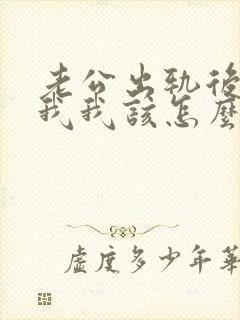 老公出轨後
我我該怎麼
虛度多少年華